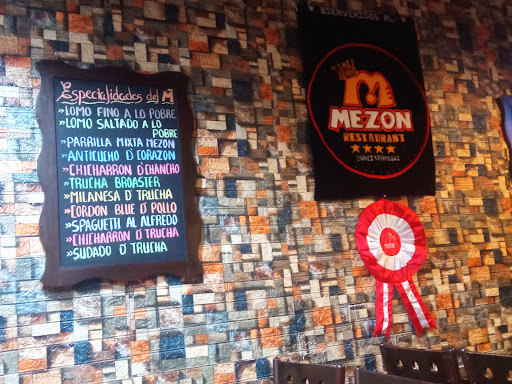 Especialidades del M
»LOMO FINO A LO POBRE
»LOMO SALTADO A LO
POBRE
»PARRILLA MIXTA MEZÓN
»ANTICUCHO D CORAZON
»CHICHARRON D'CHANCHO
»TRUCHA BROASTER
»MILANESA D TRUCHA
»CORDON BLUE D POLLO
»SPAGUETTI AL ALFREDO
»CHICHARRON D TRUCHA
»SUDADO D TRUCHA
BIENVENIDOS AL
M
MEZON
RESTAURANT
CARNES Y PARRILLAS